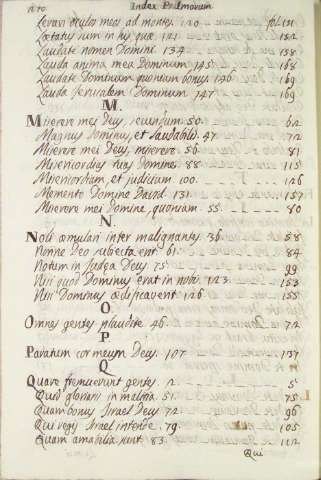 Index Psalmorum
Levavi oculos meos ad montes 120 fol: 151
Lætatus sum in his quæ 121 152
Laudate nomen Domini 134 158
Lauda anima mea Dominum 145 168
Laudate Dominum quoniam bonus 146 169
Lauda Jerusalem Dominum 147 169
M
Miserere mei Deus, secundum 50 62
Magnus Dominus, et laudabilis 47 72
Miserere mei Deus, miserere 56 81
Misericordias tuas Domine 88 115
Misericordiam, et judicium 100 126
Memento Domine David 131 157
Miserere mei Domine, quoniam 55 80
N
Noli æmulari inter malignantes 36 58
Nonne Deo subiecta erit 61 84
Notum in Judea Deus 75 99
Nisi quod Dominus erat in nobis 123 153
Nisi Dominus ædificaverit 126 155
O
Omnes gentes plaudite 46 72
P
Paratum cor meum Deus 107 137
Q
Quare fremuerunt gentes 2 5
Quid gloriaris in malitia 51 75
Quam bonus Israel Deus 72 96
Qui regis Israel intende 79 105
Quam amabilia sunt 83 112
Qui